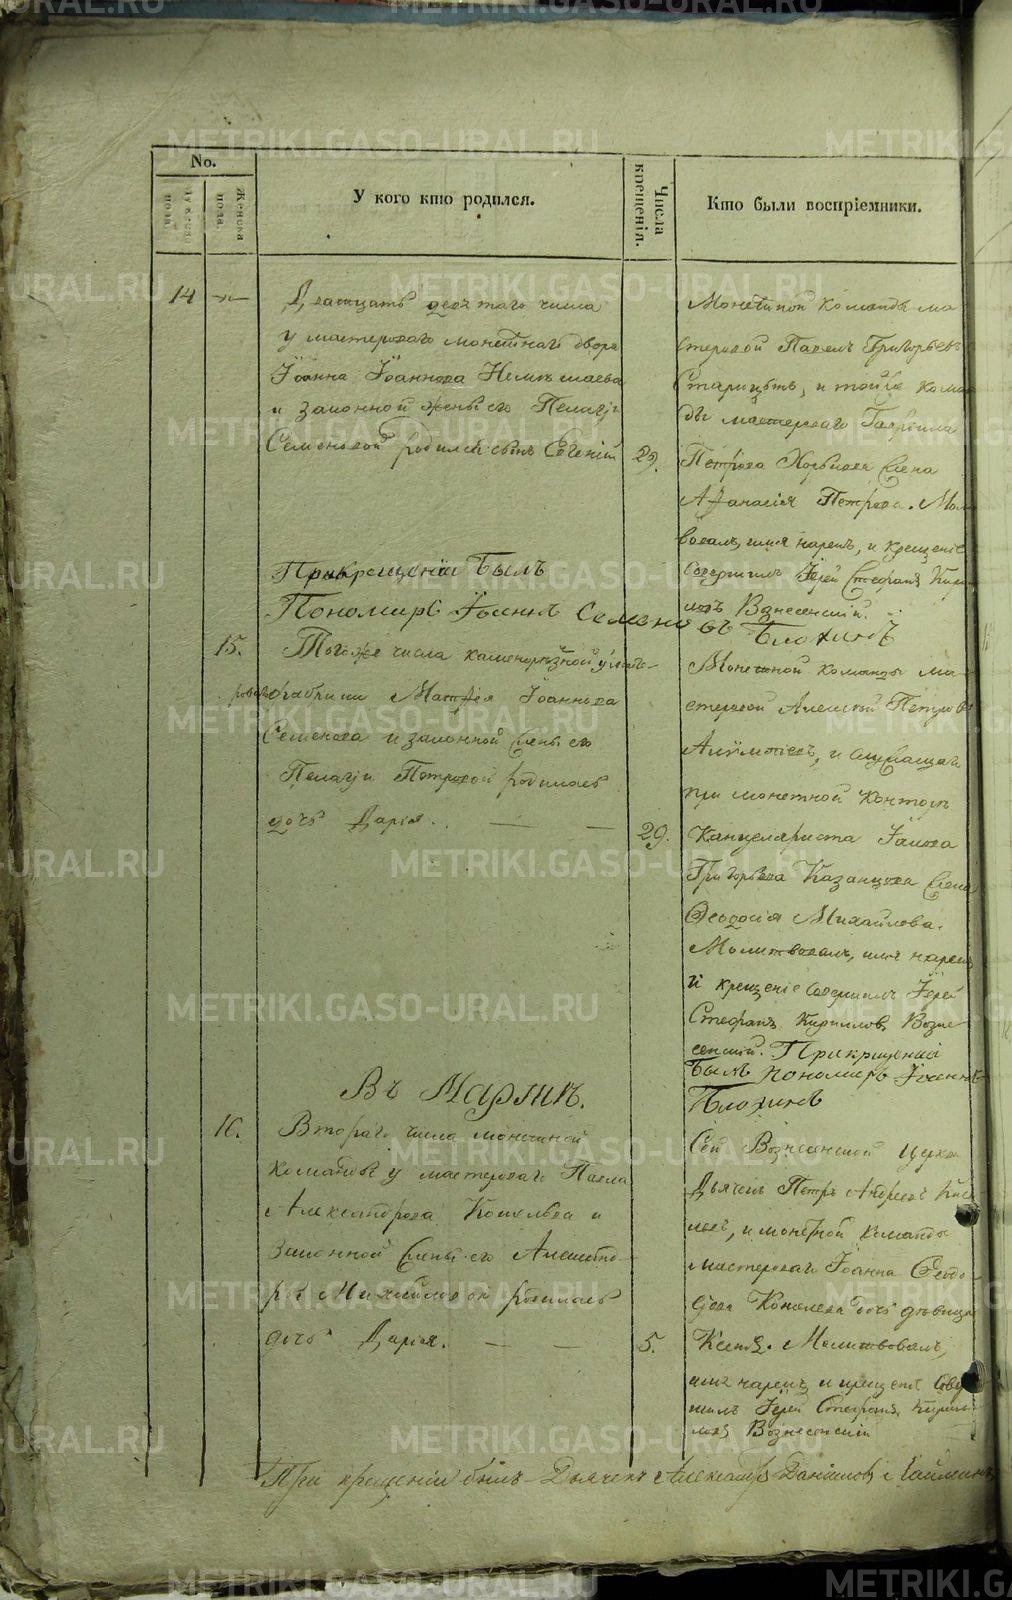 METRIKI.GASO-URAL.RU
No.
Мужеска пола.
Женска пола.
У кого кто родился.
Числа крещенія.
Кто были воспріемники.
14
числа
у мастероваго монетнаго двора
Іоанна Іоаннова
и законной жены его Пелагіи
Семеновой родился сынъ Евгеній
29.
Монетной команды ма
стеровой Павелъ Григорьевъ
и той же коман
ды мастероваго Гавріила
Петрова жена
Афанасія Петрова. Моли
вовалъ, имя нарекъ, и крещеніе
совершилъ Іерей Стефанъ Кири
ловъ Вознесенскій.
При крещеніи былъ
Пономарь Іоаннъ Семеновъ Блохинъ
15.
Того же числа
фабрики Іоаннова
Семенова и законной жены его
Пелагіи Петровой родилась
дочь Дарія.
29.
Монетной команды ма
стеровой Алексей Петровъ
и служащаго
при монетной конторе
Канцеляриста Іакова
Григорьева Казанцова жена
Феодосія Михайлова.
Молитвовалъ, имя нарекъ
и крещеніе совершилъ Іерей
Стефанъ Кирилловъ Возне
сенскій. При крещеніи
былъ пономарь Іоаннъ
Блохинъ
Въ Мартѣ.
16.
Втораго числа монетной
команды у мастероваго Павла
Александрова и
законной жены его Александ
ры Михайловой родилась
дочь Дарія.
5.
Сей Вознесенской церкви
Дьячекъ Петръ Андреевъ Кисе
левъ, и монетной команды
мастероваго Іоанна Феодо
рова дочь девица
Ксенія. Молитвовалъ,
имя нарекъ и крещеніе совер
шилъ Іерей Стефанъ Кирил
ловъ Вознесенскій
При крещеніи былъ Дьячекъ Александръ Даніиловъ